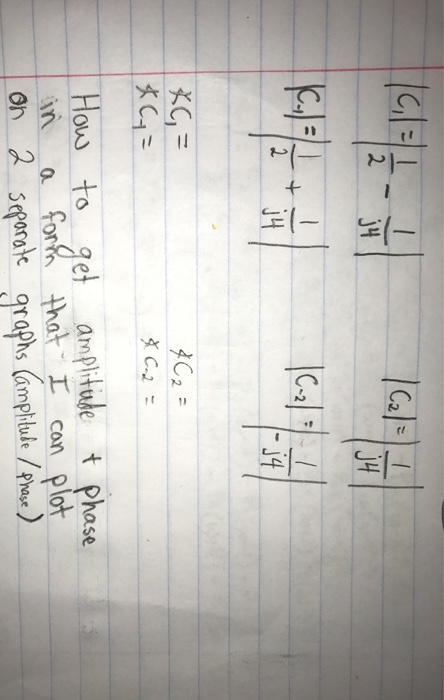 |C₁| = |1/2 - 1/j4| |C₂| = |1/j4|
|C₋₁| = |1/2 + 1/j4| |C₋₂| = |-1/j4|
∡C₁ = ∡C₂ =
∡C₋₁ = ∡C₋₂ =
How to get amplitude + phase
in a form that I can plot
on 2 separate graphs (amplitude / phase)